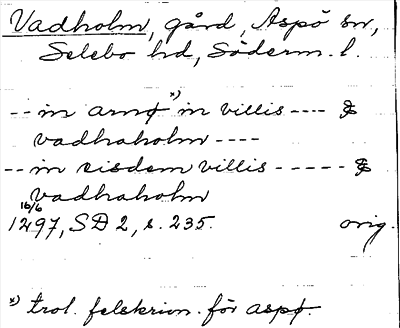 Vadholm, gård, Aspö sn,
Selebo hd, Söderm. l.
-- in arnø x) in villis ---- &
vadhaholm ----
-- in eisdem villis ----- &
Vadhaholm
16/6
1297, SD 2, s. 235. orig.
x) trol. felskrivn. för aspø.